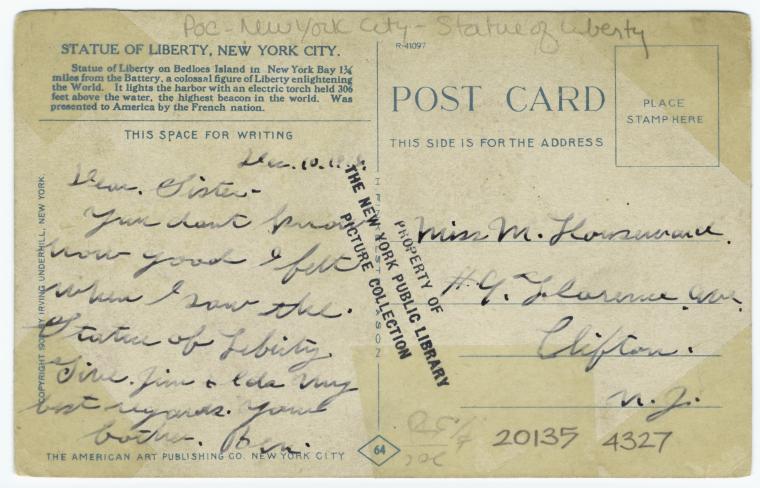 Poc - New York City - Statue of Liberty
STATUE OF LIBERTY, NEW YORK CITY.
Statue of Liberty on Bedloes Island in New York Bay 1¾
miles from the Battery, a colossal figure of Liberty enlightening
the World. It lights the harbor with an electric torch held 306
feet above the water, the highest beacon in the world. Was
presented to America by the French nation.
THIS SPACE FOR WRITING
Dec. 10.
Dear. Sister-
You dont know
how good I felt
when I saw the.
Statue of Liberty
Give. Jim & Ida my
best regards. Your
bother. Ben.
COPYRIGHT BY IRVING UNDERHILL, NEW YORK.
THE AMERICAN ART PUBLISHING CO. NEW YORK CITY
64
R-41097
POST CARD
THIS SIDE IS FOR THE ADDRESS
PLACE
STAMP HERE
Miss M.
# 9. Florence ave.
Clifton.
N. J.
PROPERTY OF
THE NEW YORK PUBLIC LIBRARY
PICTURE COLLECTION
20135 4327